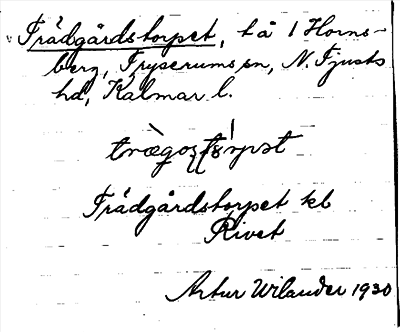 Trädgårdstorpet, t å 1 Horns-
berg, Tryserums sn, N. Tjusts
hd, Kalmar l.
Trädgårdstorpet kl
Rivet
Artur Wilander 1930